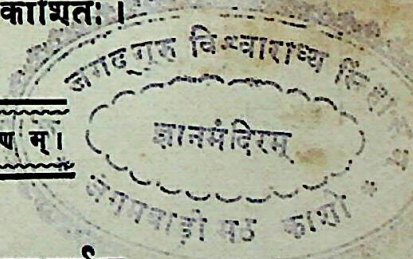 काशितः ।
जगद्गुरु विश्वाराध्य
ज्ञानमंदिरम्
जंगमवाड़ी मठ काशी
ण म् ।